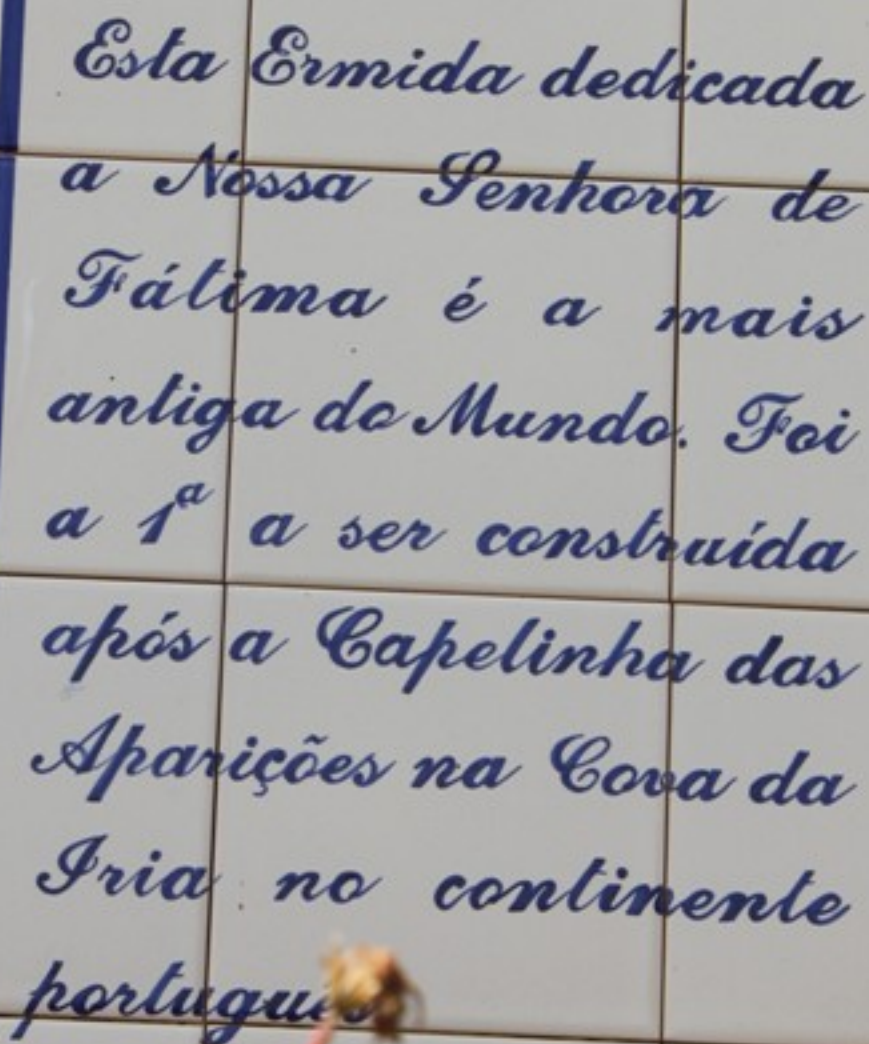 Esta Ermida dedicada
a Nossa Senhora de
Fátima é a mais
antiga do Mundo. Foi
a 1ª a ser construída
após a Capelinha das
Aparições na Cova da
Iria no continente